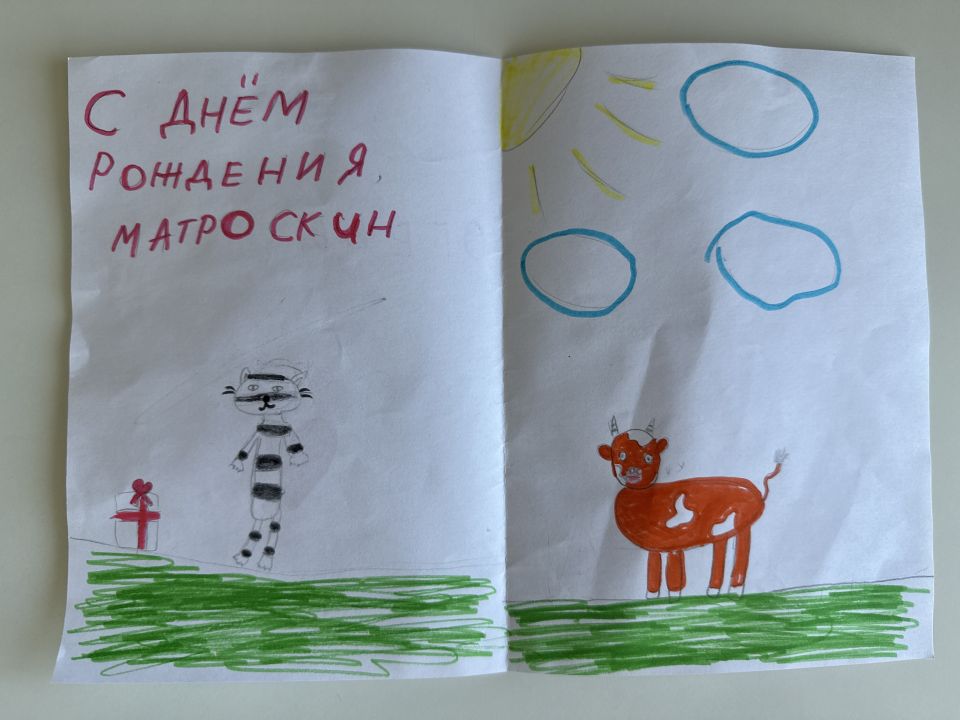 С ДНЁМ
РОЖДЕНИЯ,
МАТРОСКИН